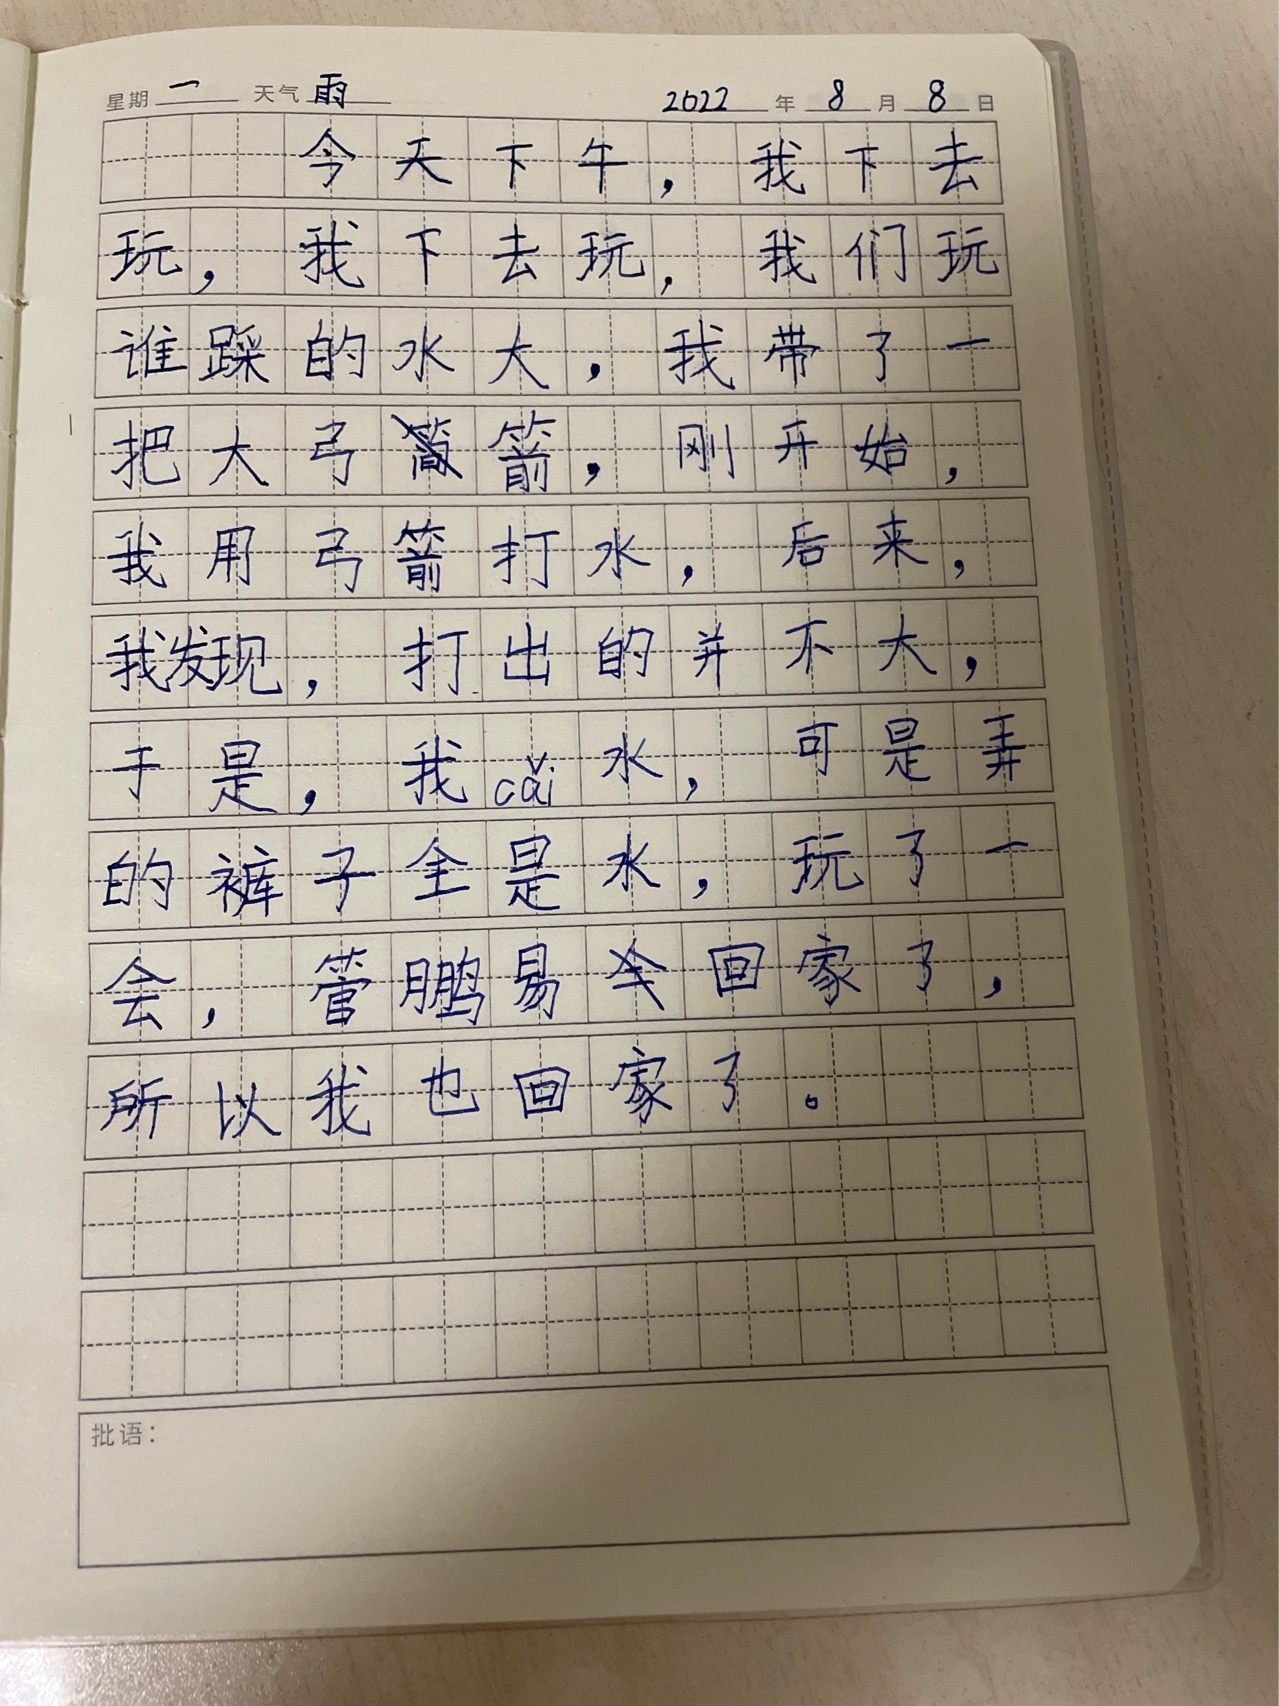 星期 一 天气 雨 2022 年 8 月 8 日
今天下午，我下去
玩，我下去玩，我们玩
谁踩的水大，我带了一
把大弓箭，刚开始，
我用弓箭打水，后来，
我发现，打出的并不大，
于是，我cǎi水，可是弄
的裤子全是水，玩了一
会，管鹏易回家了，
所以我也回家了。
批语：